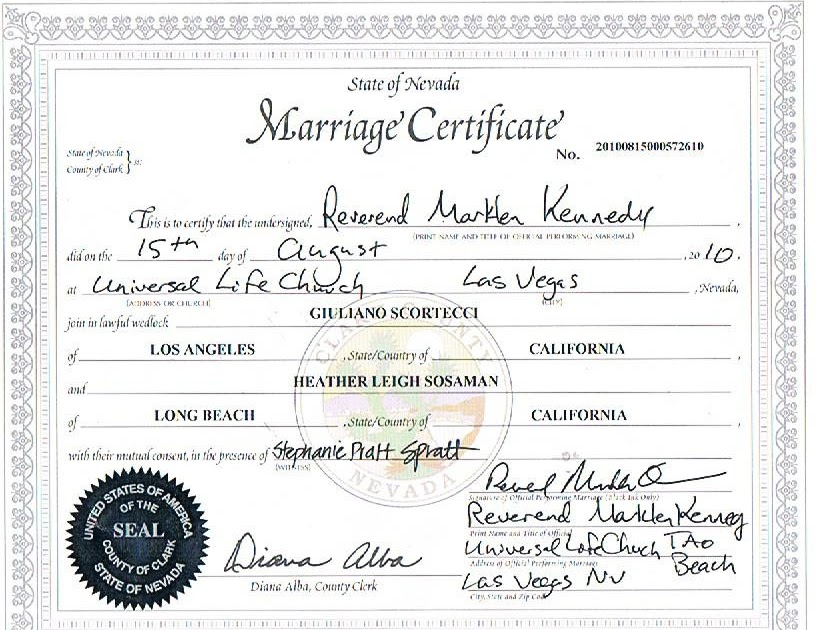 State of Nevada
Marriage Certificate
No. 20100815000572610
State of Nevada
County of Clark } ss:
This is to certify that the undersigned, Reverend Marklen Kennedy,
(PRINT NAME AND TITLE OF OFFICIAL PERFORMING MARRIAGE)
did on the 15th day of August, 2010.
at Universal Life Church Las Vegas, Nevada,
(ADDRESS OR CHURCH) (CITY)
join in lawful wedlock GIULIANO SCORTECCI
of LOS ANGELES, State/Country of CALIFORNIA,
and HEATHER LEIGH SOSAMAN
of LONG BEACH, State/Country of CALIFORNIA,
with their mutual consent, in the presence of Stephanie Pratt Spratt
(WITNESS)
Signature of Official Performing Marriage (Black Ink Only)
Reverend Marklen Kennedy
Print Name and Title of Official
Universal Life Church TAO Beach
Address of Official Performing Marriage
Las Vegas NV
City, State and Zip Code
Diana Alba
Diana Alba, County Clerk
UNITED STATES OF AMERICA
OF THE
SEAL
COUNTY OF CLARK
STATE OF NEVADA
CLARK COUNTY
NEVADA